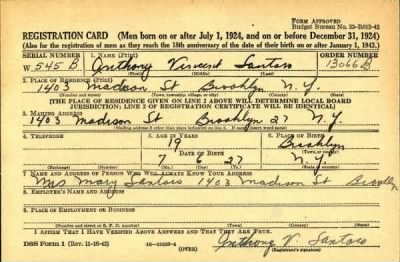 Form Approved
Budget Bureau No. 33-R012-42
REGISTRATION CARD (Men born on or after July 1, 1924, and on or before December 31, 1924)
(Also for the registration of men as they reach the 18th anniversary of the date of their birth on or after January 1, 1942.)
SERIAL NUMBER 1. NAME (Print) ORDER NUMBER
W 545 B Anthony Vincent Santoro 13066 B
2. PLACE OF RESIDENCE (Print)
1403 Madison St Brooklyn N.Y.
(Number and street) (Town, township, village, or city) (County) (State)
[THE PLACE OF RESIDENCE GIVEN ON LINE 2 ABOVE WILL DETERMINE LOCAL BOARD
JURISDICTION; LINE 2 OF REGISTRATION CERTIFICATE WILL BE IDENTICAL]
3. MAILING ADDRESS
1403 Madison St Brooklyn 27 N.Y.
[Mailing address if other than place indicated on line 2. If same insert word same]
4. TELEPHONE 5. AGE IN YEARS 6. PLACE OF BIRTH
19 Brooklyn
DATE OF BIRTH (Town or county)
7 6 27 N.Y.
(Exchange) (Number) (Mo.) (Day) (Yr.) (State or country)
7. NAME AND ADDRESS OF PERSON WHO WILL ALWAYS KNOW YOUR ADDRESS
Mrs Mary Santoro 1403 Madison St Brooklyn
8. EMPLOYER'S NAME AND ADDRESS
9. PLACE OF EMPLOYMENT OR BUSINESS
(Number and street or R. F. D. number) (Town) (County) (State)
I AFFIRM THAT I HAVE VERIFIED ABOVE ANSWERS AND THAT THEY ARE TRUE.
DSS Form 1 (Rev. 11-16-42) (OVER) Anthony V. Santoro
(Registrant's signature)